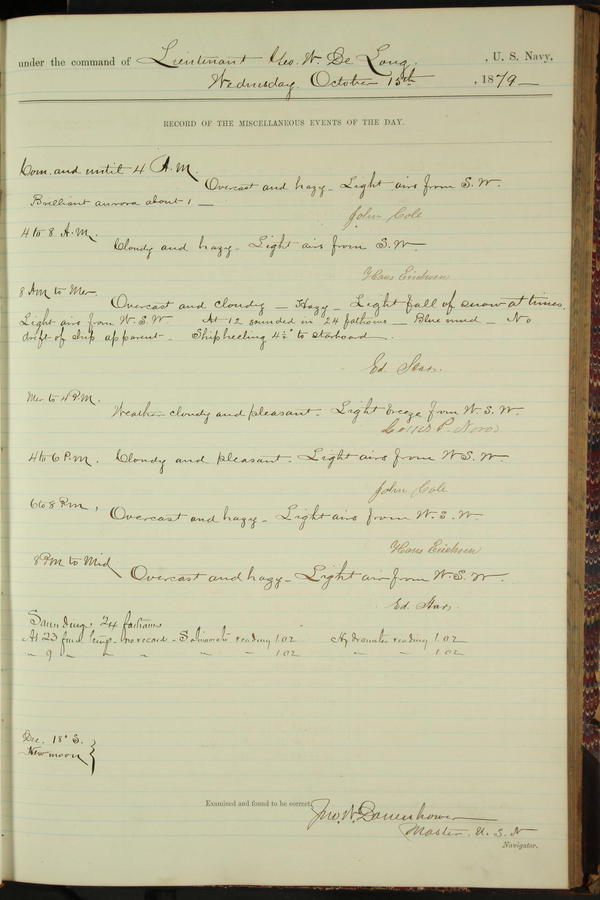 under the command of Lieutenant Geo. W. De Long. , U. S. Navy,
Wednesday October 15th , 1879
RECORD OF THE MISCELLANEOUS EVENTS OF THE DAY.
Com. and until 4 A.M.
Overcast and hazy. Light airs from S.W.
Brilliant aurora about 1 —
John Cole
4 to 8 A.M.
Cloudy and hazy. Light airs from S.W.
Hans Ericksen
8 AM to Mer.
Overcast and cloudy — Hazy — Light fall of snow at times.
Light airs from W.S.W At 12 sounded in 24 fathoms — Blue mud — No
drift of ship apparent — Ship heeling 4½° to starboard.
Ed. Star.
Mer to 4 P.M.
Weather cloudy and pleasant. Light breeze from W.S.W.
P. Noros
4 to 6 P.M. Cloudy and pleasant. Light airs from W.S.W.
John Cole
6 to 8 P.M.
Overcast and hazy — Light airs from W.S.W.
Hans Ericksen
8 PM to Mid
Overcast and hazy — Light air from W.S.W.
Ed. Star.
Sounding: 24 fathoms
At 23 fms temp. no record — Salinometer reading 1.02 Hydrometer reading 1.02
" 9 " " " " " 1.02 " " 1.02
Dec. 18° S.
New moon
Examined and found to be correct,
Jno. W. Danenhower
Master. U.S.N
Navigator.